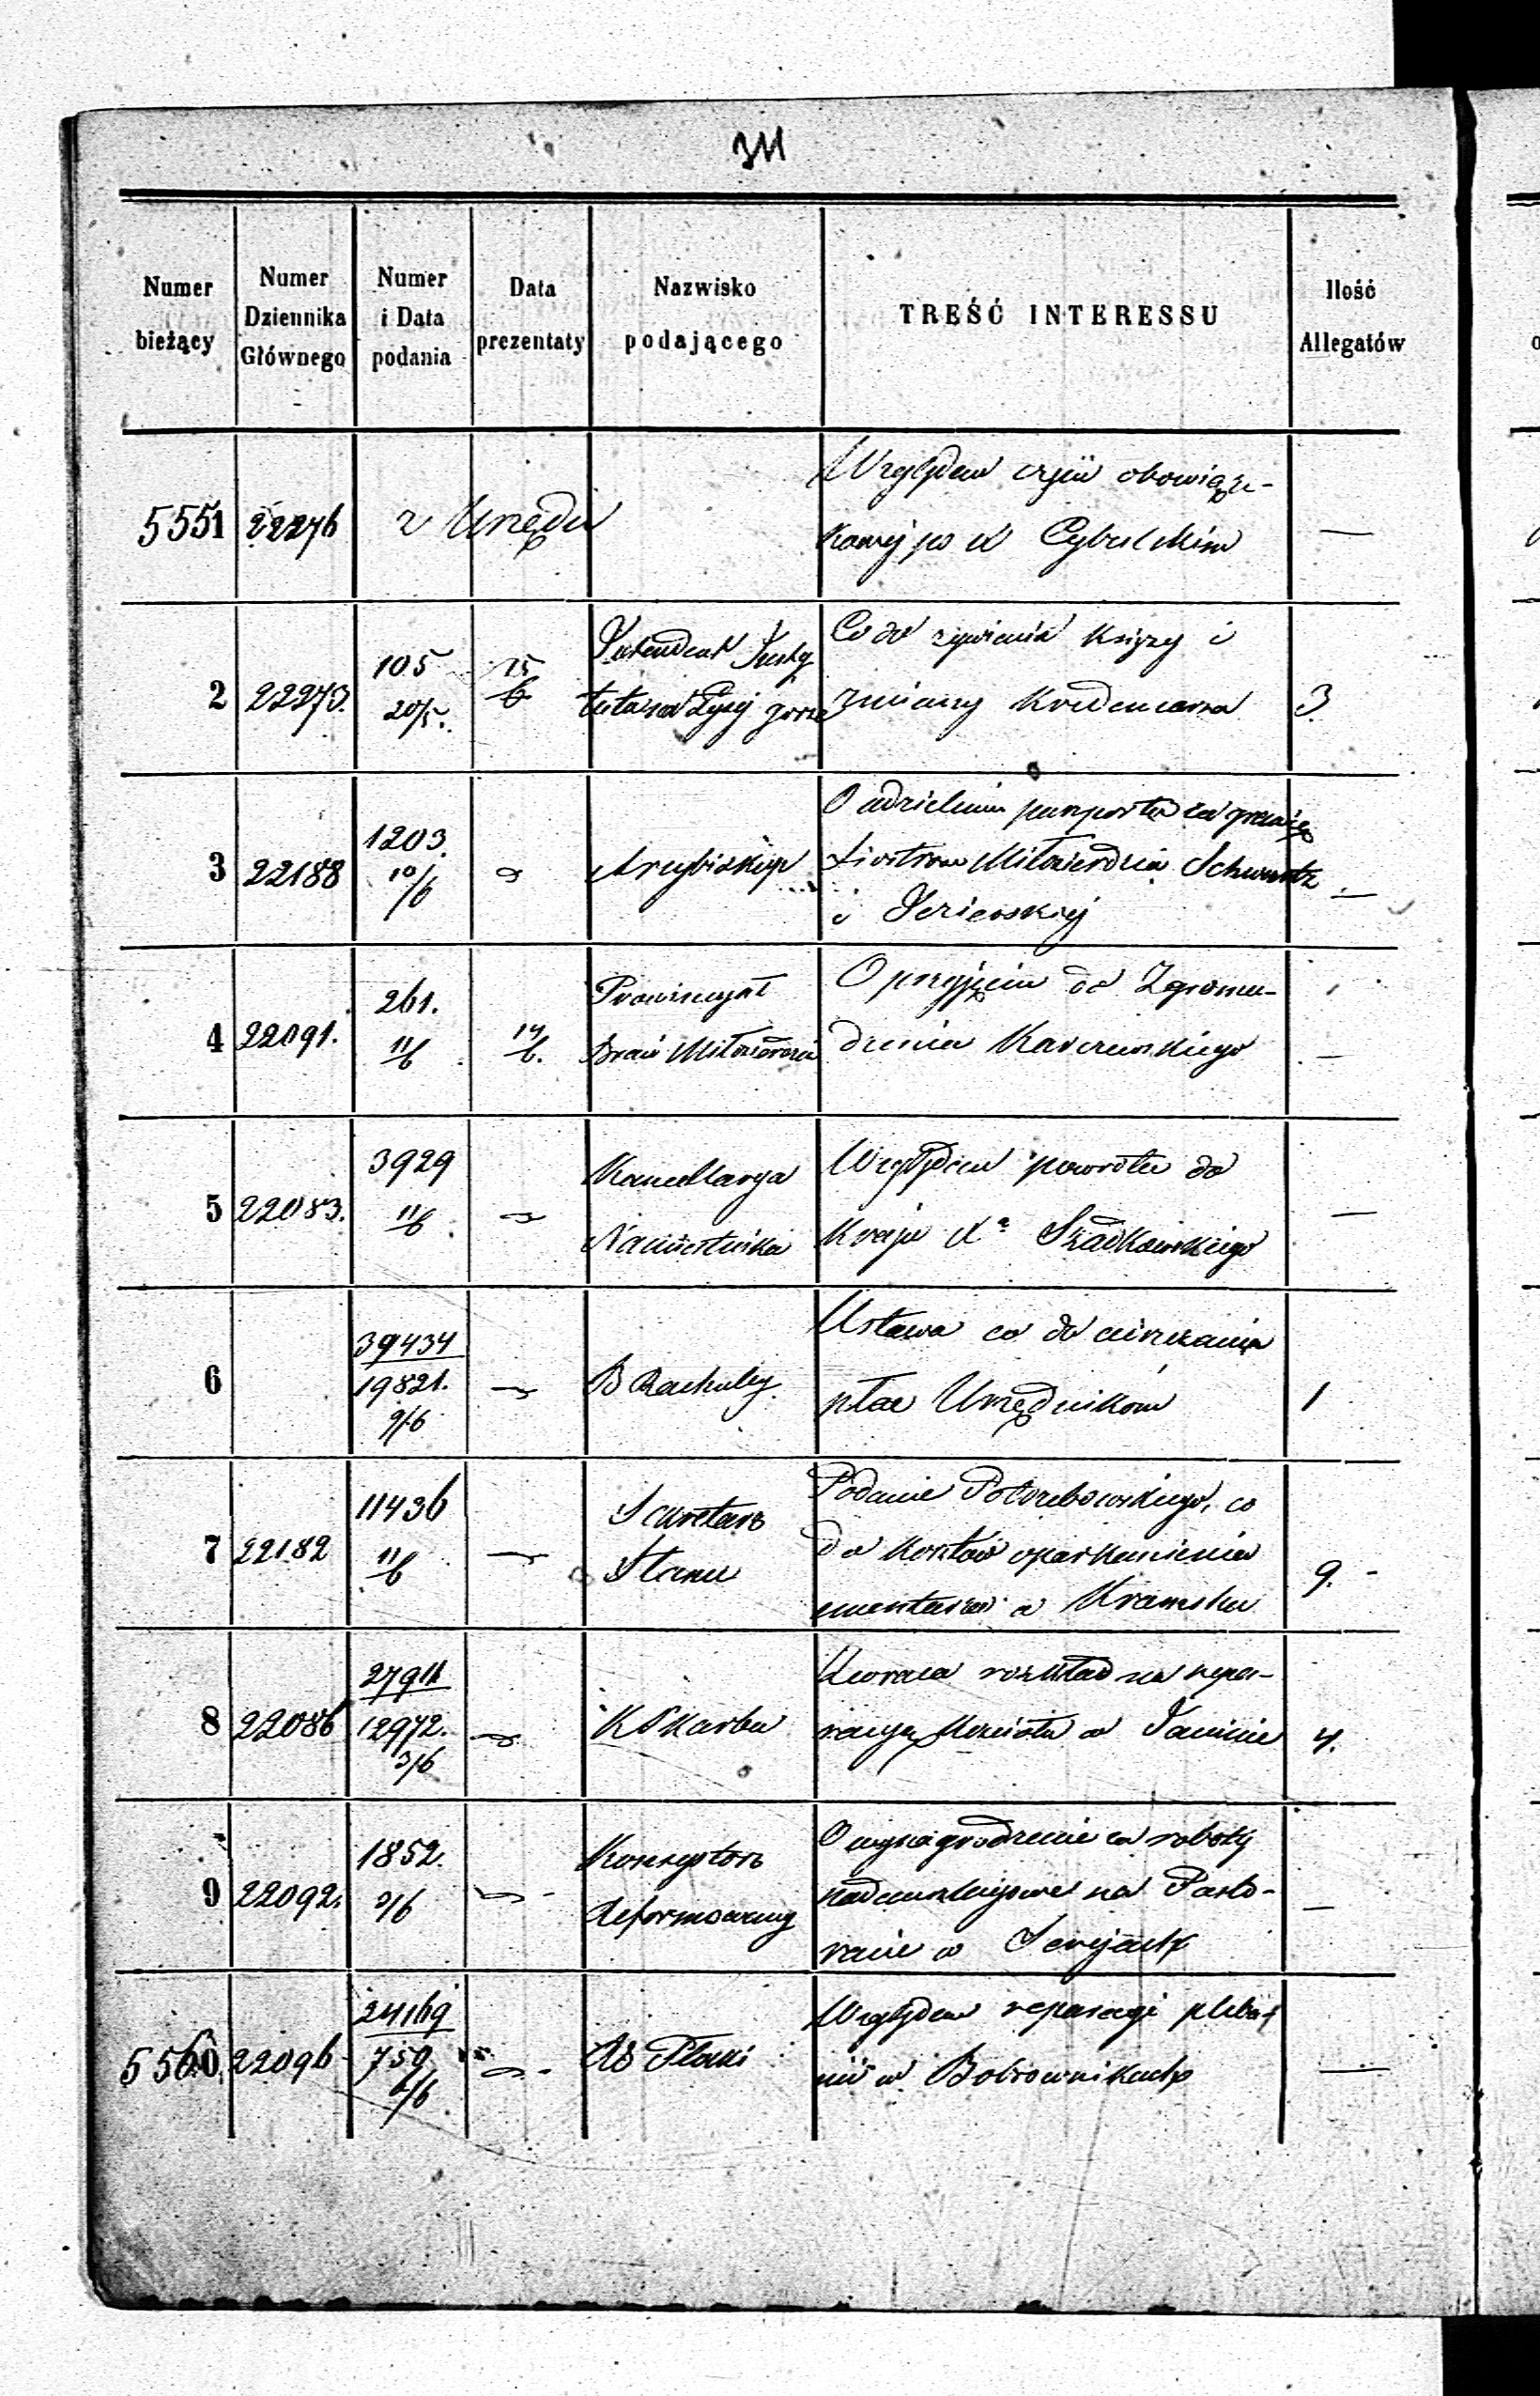 311
Numer bieżący
Numer Dziennika Głównego
Numer i Data podania
Data prezentaty
Nazwisko podającego
TREŚĆ INTERESSU
Ilość Allegatów
5551 22276 z Urzędu Względem czyń obowiąz-
kowej po X Cybulskim —
2 22273. 105 20/5. 15/6 Intendent Insty
tuta na Łysej górze
Co do żywienia Księży i
zmiany Kredensarza 3
3 22188 1203. 10/6 Arcybiskup
O udzieleniu paszportu za granicę
Siostrom Miłosierdzia Schwartz
i Jezierskiej —
4 22091. 261. 11/6 14/6. Prowincyał
Braci Miłosierdzia
O przyjęciu do Zgroma-
dzenia Karczewskiego —
5 22083. 3929 11/6 Kancellarya
Namiestnika
Względem powrotu do
Kraju Xa Szadkowskiego —
6 39434 19821. 9/6 B Rachuby
Ustawa co do
płac Urzędników 1
7 22182 11436 11/6 Sekretarz
Stanu
Podanie Potrzebowskiego, co
do kosztów oparkanienia
cmentarza w Kramsku 9. -
8 22086 27911 12972. 3/6 K Skarbu
Zwraca rozkład na repa-
racyę Kościoła w Janinie 4.
9 22092. 1852. 3/6 Konsystorz
Reformowany
O wynagrodzenie za roboty
nadanszlagowe na Pasto-
racie w Serejach —
5560 22096 24169 759 2/6 RG Płocki
Względem reparacyi pleba-
nii w Bobrownikach —